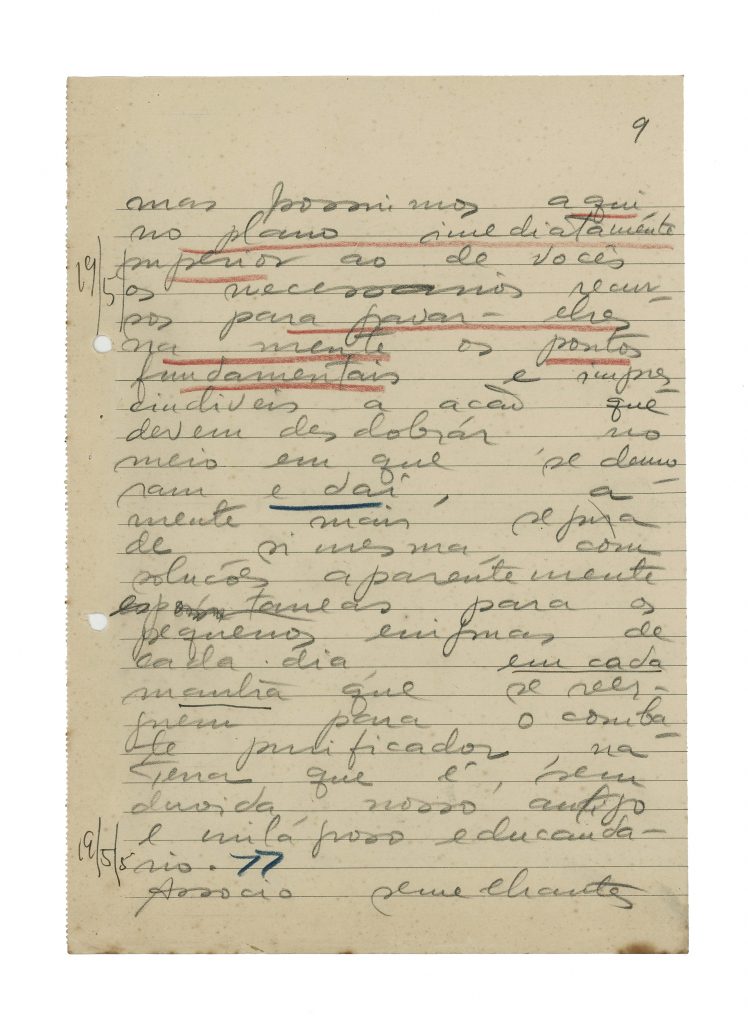 9
mas possuimos aqui
no plano imediataménte
superior ao de vocês
19/5
os necessarios recur-
sos para gravar-lhes
na mente os pontos
fundamentais e impres
cindiveis a acão quê
devem desdobrár no
meio em que se demo
ram e daí, a
mente mais segura
de si mesma, com
soluções aparêntemente
espontaneas para os
pequenos enigmas de
cada dia em cada
manhã que se reer-
guem para o comba-
te purificador, na
Terra que é, sem
duvida nosso antigo
e milagroso educanda-
19/5/5
rio. "
Associo semelhantes